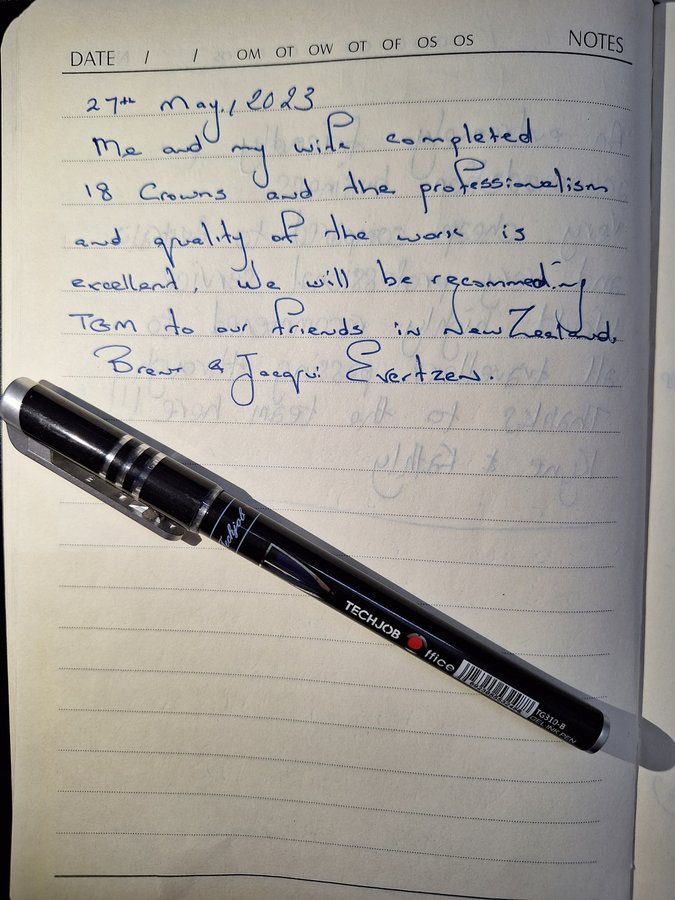 DATE / / OM OT OW OT OF OS OS NOTES
27th May, 2023
Me and my wife completed
18 Crowns and the professionalism
and quality of the work is
excellent, We will be recommeding
TGM to our friends in New Zealand.
& Jacqui Evertzen.
Techjob
TECHJOB Office
TG310-B
GEL INK PEN